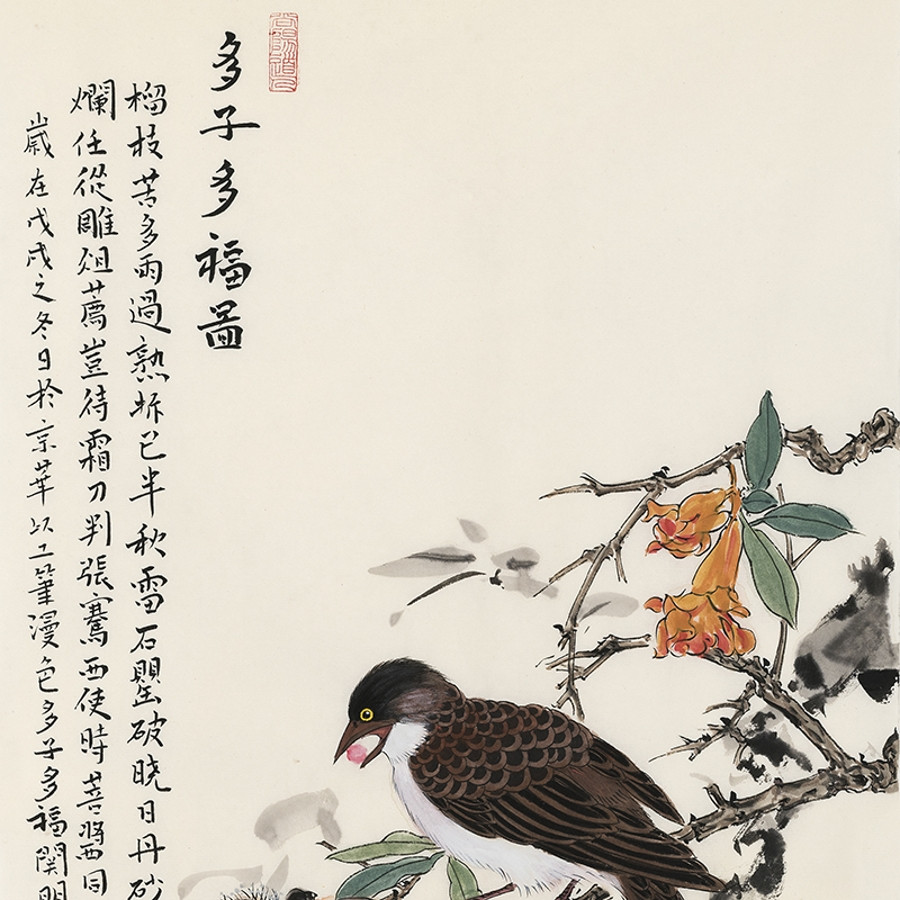 多子多福圖
榴枝苦多雨過熟坼已半秋雷石罌破曉日丹砂
爛任從雕俎薦豈待霜刀判張騫西使時昔醬同
歲在戊戌之冬日於京華以工筆漫色多子多福関明